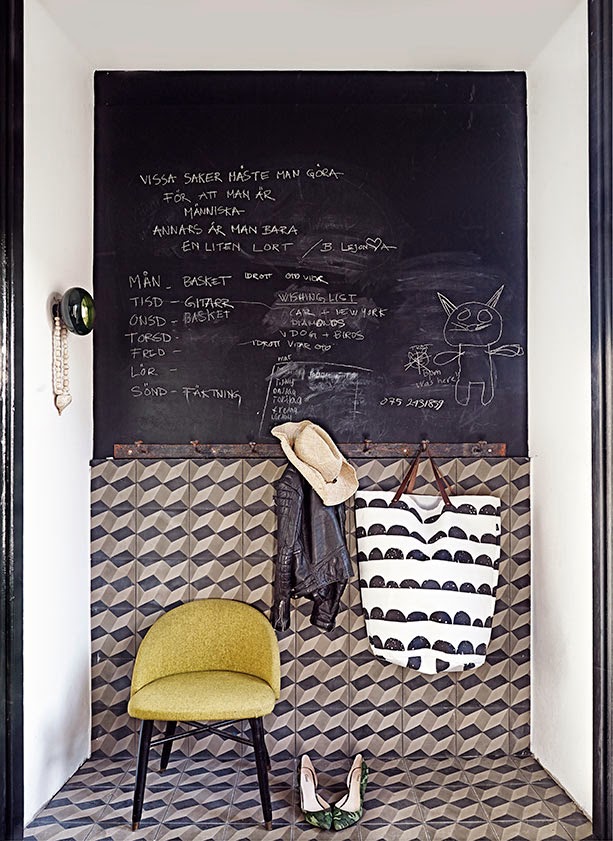 VISSA SAKER MÅSTE MAN GÖRA
FÖR ATT MAN ÄR
MÄNNISKA
ANNARS ÄR MAN BARA
EN LITEN LORT / B. LEJON♡A
MÅN - BASKET IDROTT
TISD - GITARR
ONSD - BASKET
TORSD -
FRED -
LÖR -
SÖND - FÄKTNING
WISHING LIST
CAR + NEW YORK
DIAMONDS
DOG + BIRDS
IDROTT
was here!